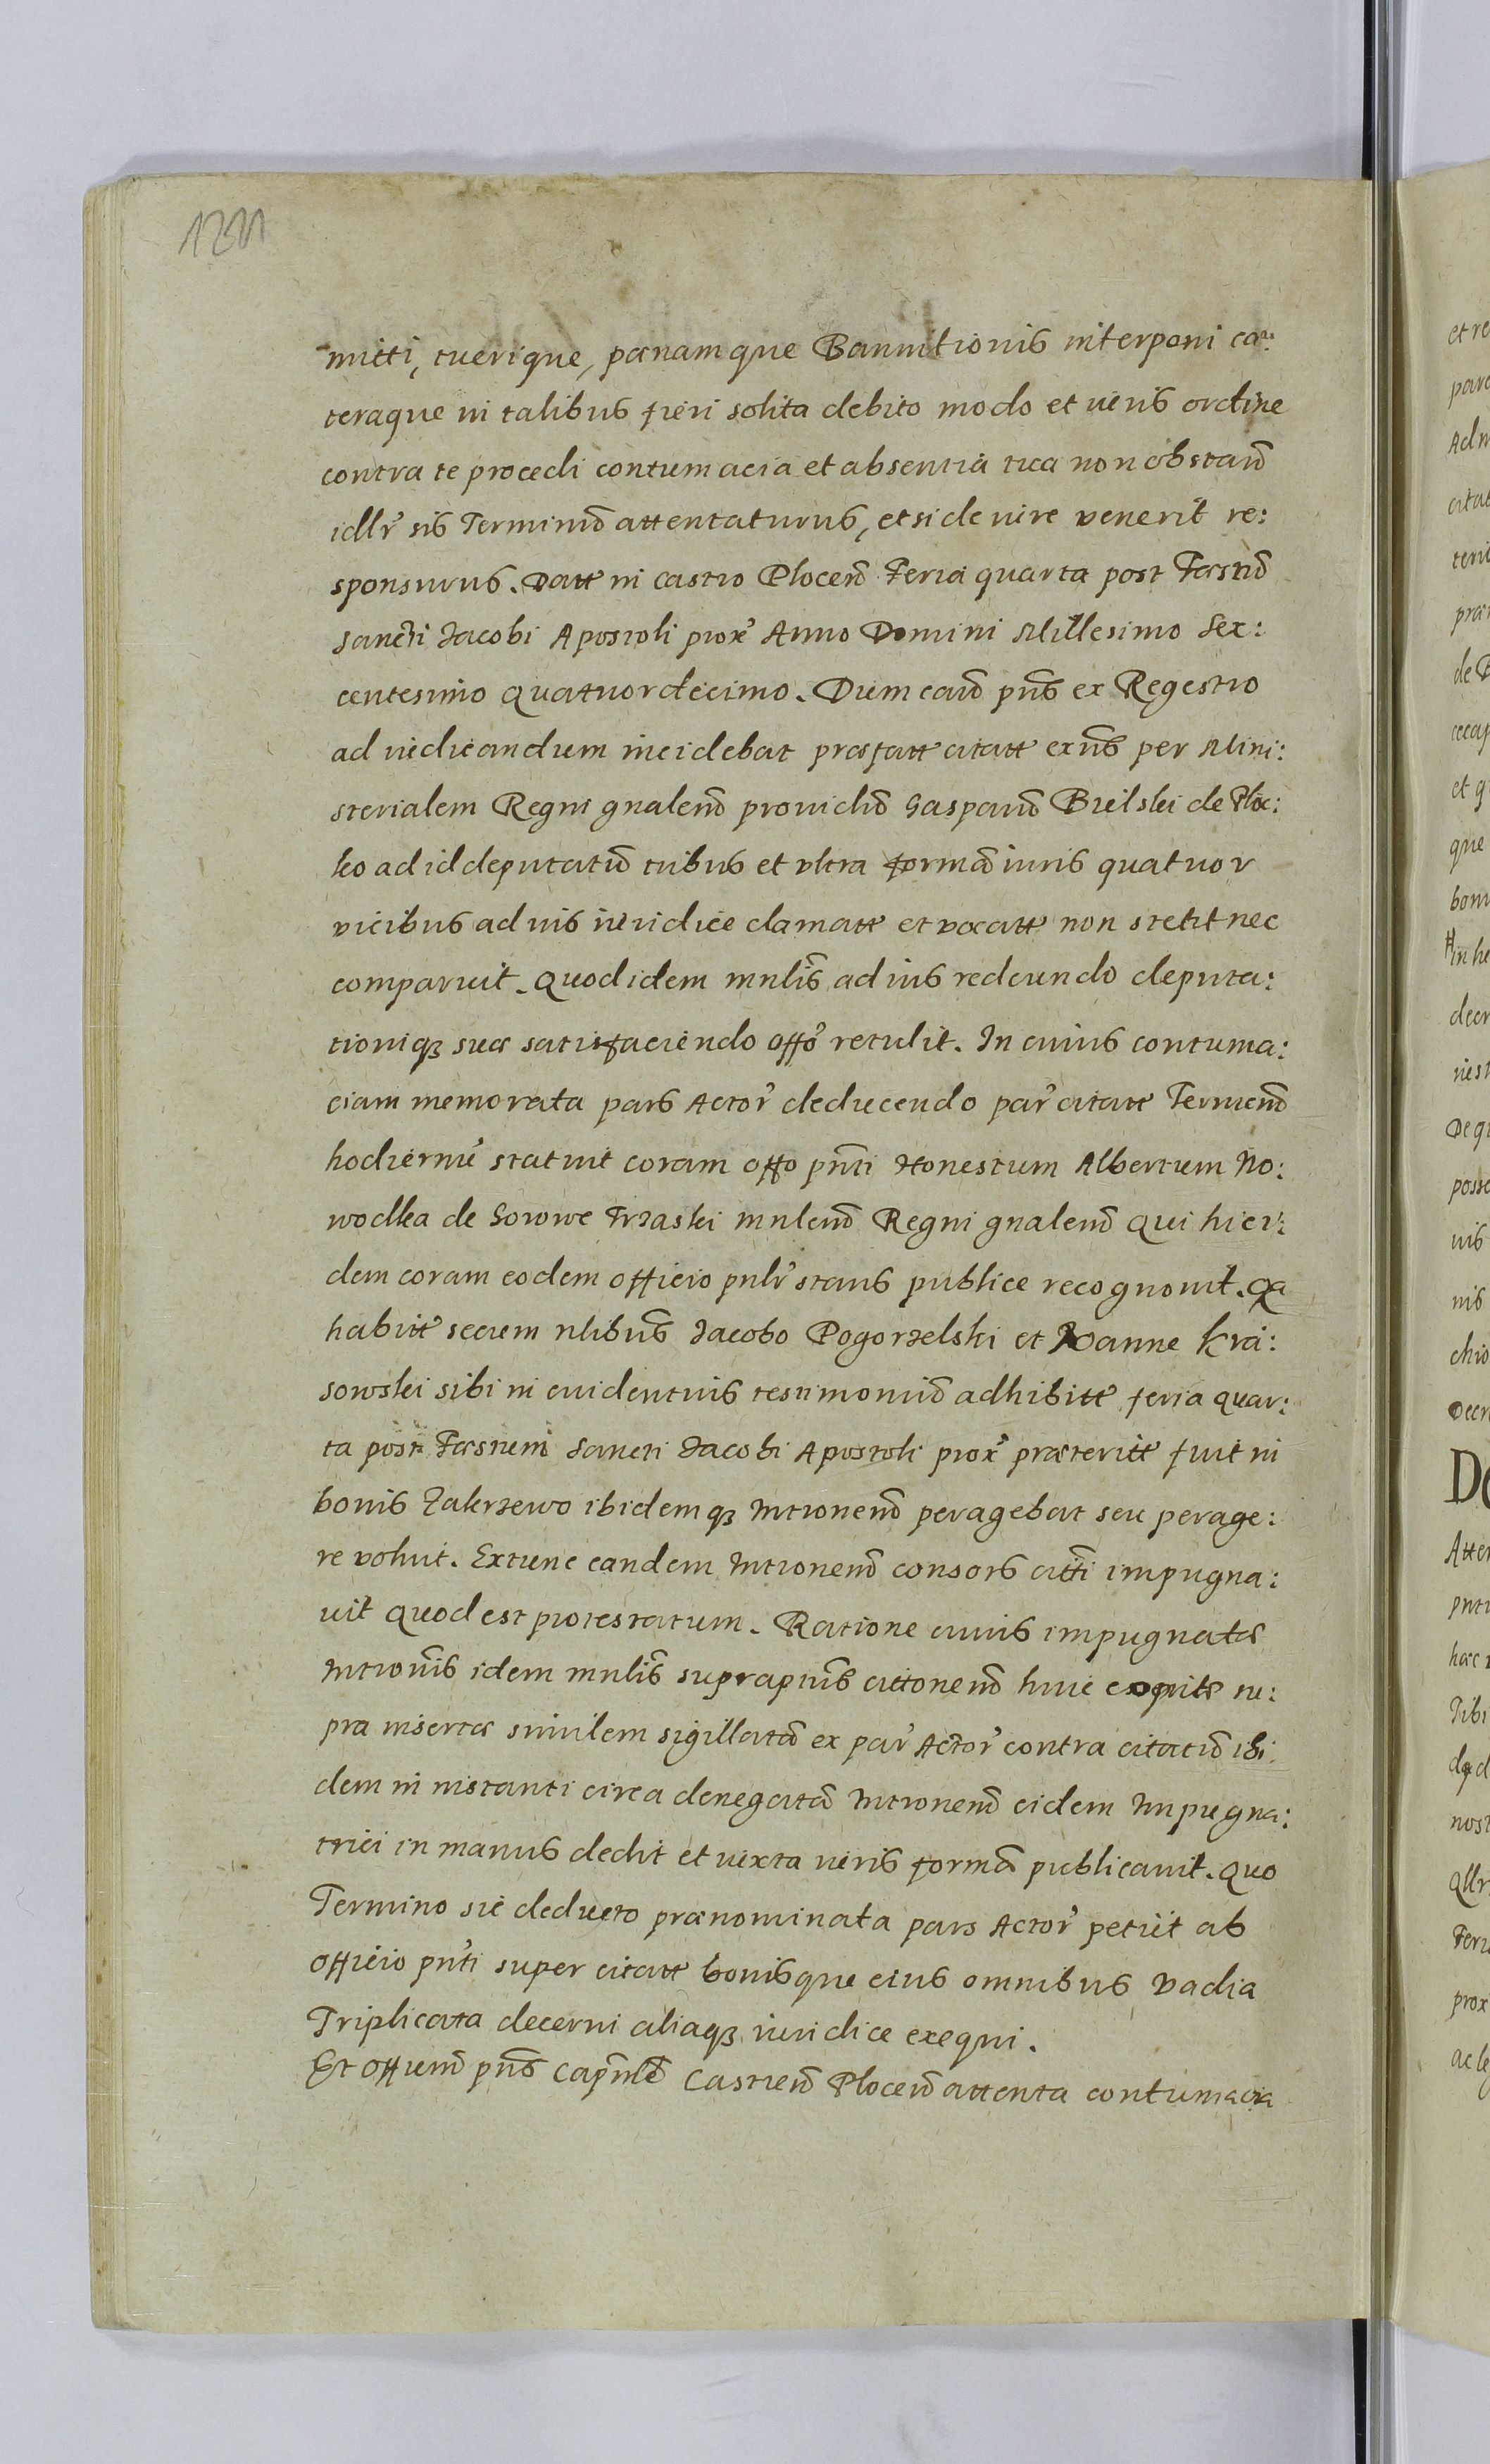 1211
mitti, tuerique, pœnamque Bannitionis interponi cæ:
teraque in talibus fieri solita debito modo et iuris ordine
contra te procedi contumacia et absentia tua non obstan̄
idlr̄ sis Terminū attentaturus, et si de iure venerit re:
sponsurus. Datt in castro Plocen̄ Feria quarta post Fæstū
Sancti Jacobi Apostoli prox̄ Anno Domini Millesimo Sex:
centesimo quatuordecimo. Dum eān pn̄s ex Regestro
ad iudicandum incidebat præfatt citatt exn̄s per Mini:
sterialem Regni gnalem̄ providū Gasparū Bielski de Ploc:
ko ad id deputatū tribus et vltra formā iuris quatuor
vicibus ad ius iuridice clamatt et vocatt non stetit nec
comparuit. Quod idem mnlis̄ ad ius redeundo deputa:
tioniqꝫ suæ satisfaciendo offo retulit. In cuius contuma:
ciam memorata pars Actor̄ deducendo par̄ citatt Termen̄
hodiernū statuit coram offo pn̄ti Honestum Albertum No:
wodka de Sowowe Trzaski mnlem̄ Regni gnalem̄ qui hic i:
dem coram eodem officio pnlr̄ stans publice recognouit. Qa
habitt secum nlibus̄ Jacobo Pogorzelski et Joanne Kra:
sowski sibi in euidentius testimoniū adhibitt feria quar:
ta post Fæstum Sancti Jacobi Apostoli prox̄ præteritt fuit in
bonis Zakrzewo ibidemqꝫ Intronem̄ peragebat seu perage:
re voluit. Extunc eandem Intronem̄ consors citti impugna:
uit quod est protestatum. Ratione cuius impugnatæ
Intronis̄ idem mnlis̄ suprapn̄s cittonem̄ huic copiæ su:
pra insertæ similem sigillatā ex par̄ Actor̄ contra citatū ibi:
dem in instanti circa denegatā Intronem̄ eidem Impugna:
trici in manus dedit et iuxta iuris formā publicauit. Quo
Termino sic deducto prænominata pars Actor̄ petiit ab
officio pn̄ti super citatt bonisque eius omnibus vadia
Triplicata decerni aliaqꝫ iuridice exequi.
Et offium̄ pn̄s Capn̄le Castren̄ Plocen̄ attenta contumacia